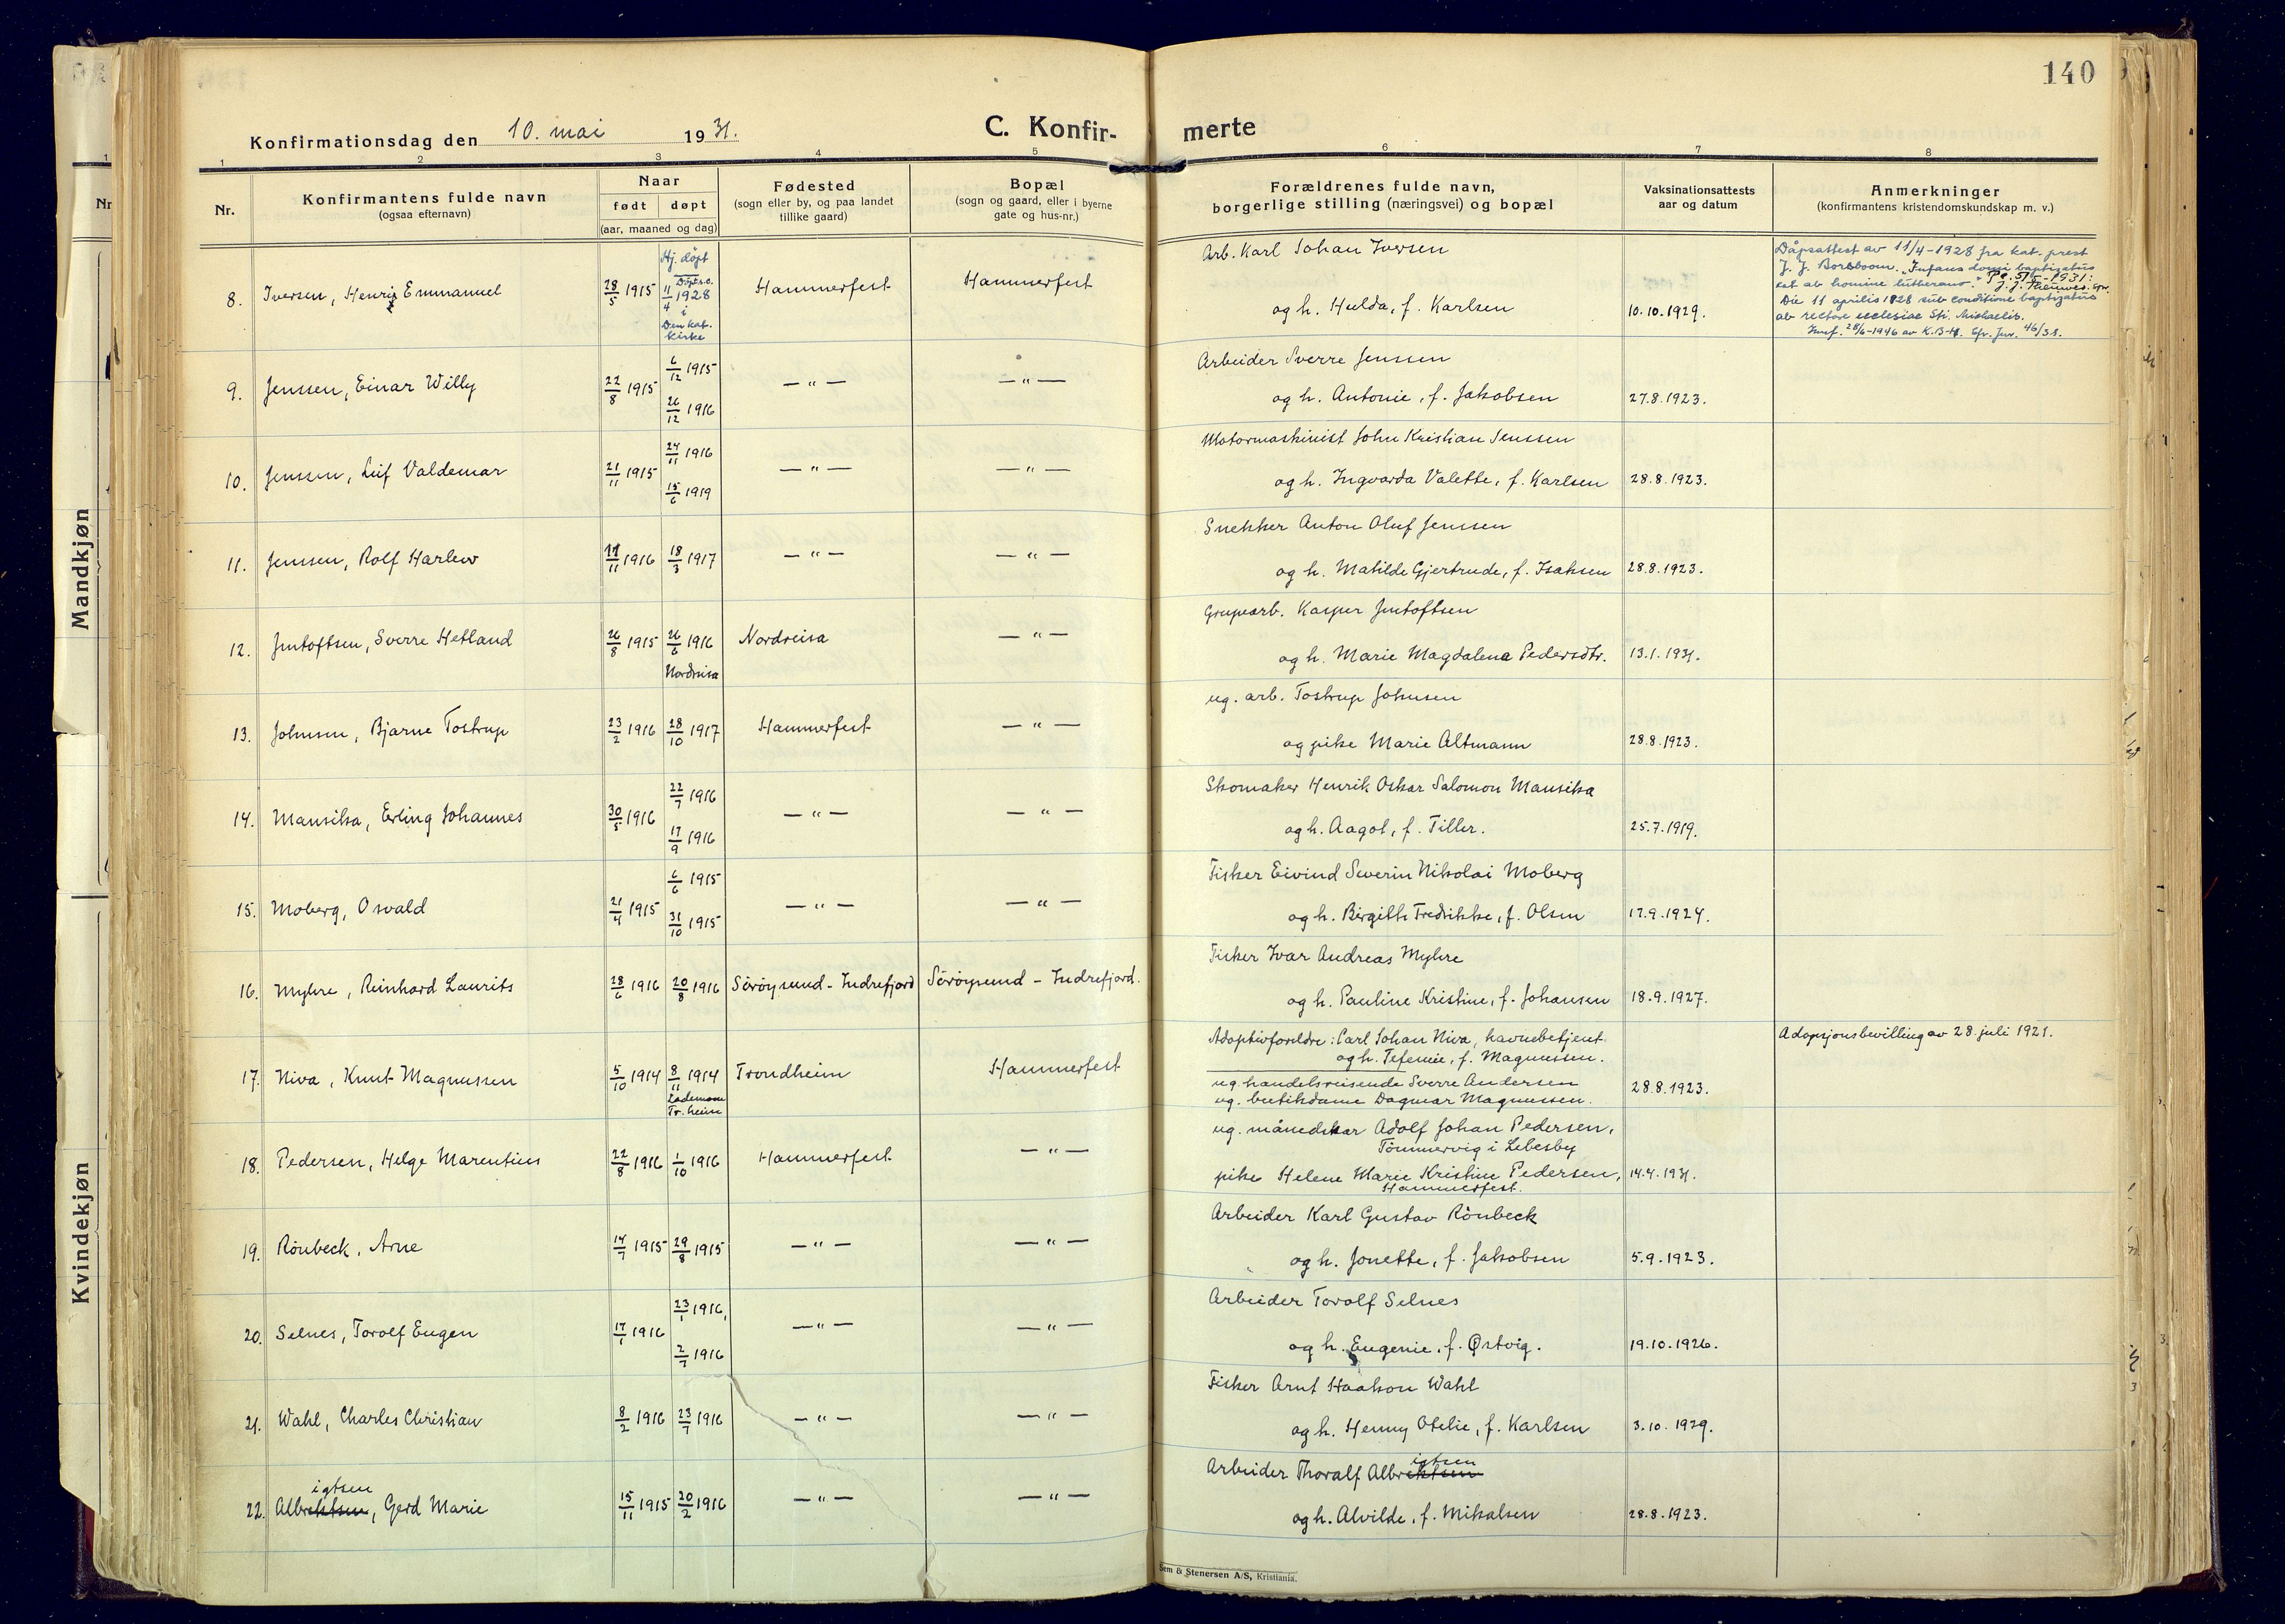 140
Konfirmationsdag den 10. mai 1931.
C. Konfir-
merte
1 2 3 4 5 6 7 8
Nr.
Konfirmantens fulde navn
(ogsaa efternavn)
Naar
født døpt
(aar, maaned og dag)
Fødested
(sogn eller by, og paa landet
tillike gaard)
Bopæl
(sogn og gaard, eller i byerne
gate og hus-nr.)
Forældrenes fulde navn,
borgerlige stilling (næringsvei) og bopæl
Vaksinationsattests
aar og datum
Anmerkninger
(konfirmantens kristendomskundskap m. v.)
Mandkjøn
Kvindekjøn
8. Iversen, Henrik Emmanuel 28/5 1915
Hj. døpt
Døpt s.c.
11/4 1928
i
Den kat.
kirke
Hammerfest Hammerfest
Arb. Karl Johan Iversen
og h. Hulda, f. Karlsen 10.10.1929.
Dåpsattest av 11/4-1928 fra kat. prest
J. J. Borsboom. "Infans domi baptizatus
est ab homine lutherano."
Die 11 aprilis 1928 sub conditione baptizatus
ab rectore ecclesiae Sti. Michaelis.
9. Jenssen, Einar Willy 22/8 1915 6/12 1915
26/12 1916
— " — — " —
Arbeider Sverre Jenssen
og h. Antonie, f. Jakobsen 27.8.1923.
10. Jenssen, Leif Valdemar 21/11 1915 24/11 1916
15/6 1919
— " — — " —
Motormaskinist John Kristian Jenssen
og h. Ingvarda Valette, f. Karlsen 28.8.1923.
11. Jenssen, Rolf Harlew 11/11 1916 18/3 1917 — " — — " —
Snekker Anton Oluf Jenssen
og h. Matilde Gjertrude, f. Isaksen 28.8.1923.
12. Jentoftsen, Sverre Hetland 26/8 1915 26/6 1916
Nordreisa
Nordreisa — " —
Grupearb. Kasper Jentoftsen
og h. Marie Magdalena Pedersdtr. 13.1.1931.
13. Johnsen, Bjarne Tostrup 23/2 1916 28/10 1917 Hammerfest — " —
ug. arb. Tostrup Johnsen
og pike Marie Altmann 28.8.1923.
14. Mansika, Erling Johannes 30/5 1916 22/7 1916
17/9 1916
— " — — " —
Skomaker Henrik Oskar Salomon Mansika
og h. Aagot, f. Tiller. 25.7.1919.
15. Moberg, Osvald 21/4 1915 6/6 1915
31/10 1915
— " — — " —
Fisker Eivind Severin Nikolai Moberg
og h. Birgith Fredrikke, f. Olsen 17.9.1924.
16. Myhre, Reinhard Laurits 28/6 1916 20/8 1916 Söröysund - Indrefjord Söröysund - Indrefjord.
Fisker Ivar Andreas Myhre
og h. Pauline Kristine, f. Johansen 18.9.1927.
17. Niva, Knut Magnussen 5/10 1914 8/11 1914
Lademoen
Tr.heim
Trondheim Hammerfest
Adoptivforeldre: Carl Johan Niva, havnebetjent
og h. Tefenie, f. Magnussen.
ug. handelsreisende Sverre Andersen
ug. butikdame Dagmar Magnussen. 28.8.1923.
Adopsjonsbevilling av 28. juli 1921.
18. Pedersen, Helge Marentius 22/8 1916 1/10 1916 Hammerfest — " —
ug. månedskar Adolf Johan Pedersen,
Tömmervig i Lebesby
pike Helene Marie Kristine Pedersen, 14.4.1931.
Hammerfest.
19. Rönbeck, Arne 14/7 1915 29/8 1915 — " — — " —
Arbeider Karl Gustav Rönbeck
og h. Jonette, f. Jakobsen 5.9.1923.
20. Selnes, Torolf Eugen 17/1 1916 23/1 1916,
2/7 1916
— " — — " —
Arbeider Torolf Selnes
og h. Eugenie, f. Østvig. 19.10.1926.
21. Wahl, Charles Christian 8/2 1916 23/7 1916 — " — — " —
Fisker Arnt Haakon Wahl
og h. Henny Otelie, f. Karlsen 3.10.1929.
igtsen
22. Albrektsen, Gerd Marie 15/11 1915 20/2 1916 — " — — " —
igtsen
Arbeider Thoralf Albrektsen
og h. Alvilde, f. Mikalsen 28.8.1923.
Sem & Stenersen A/S, Kristiania.